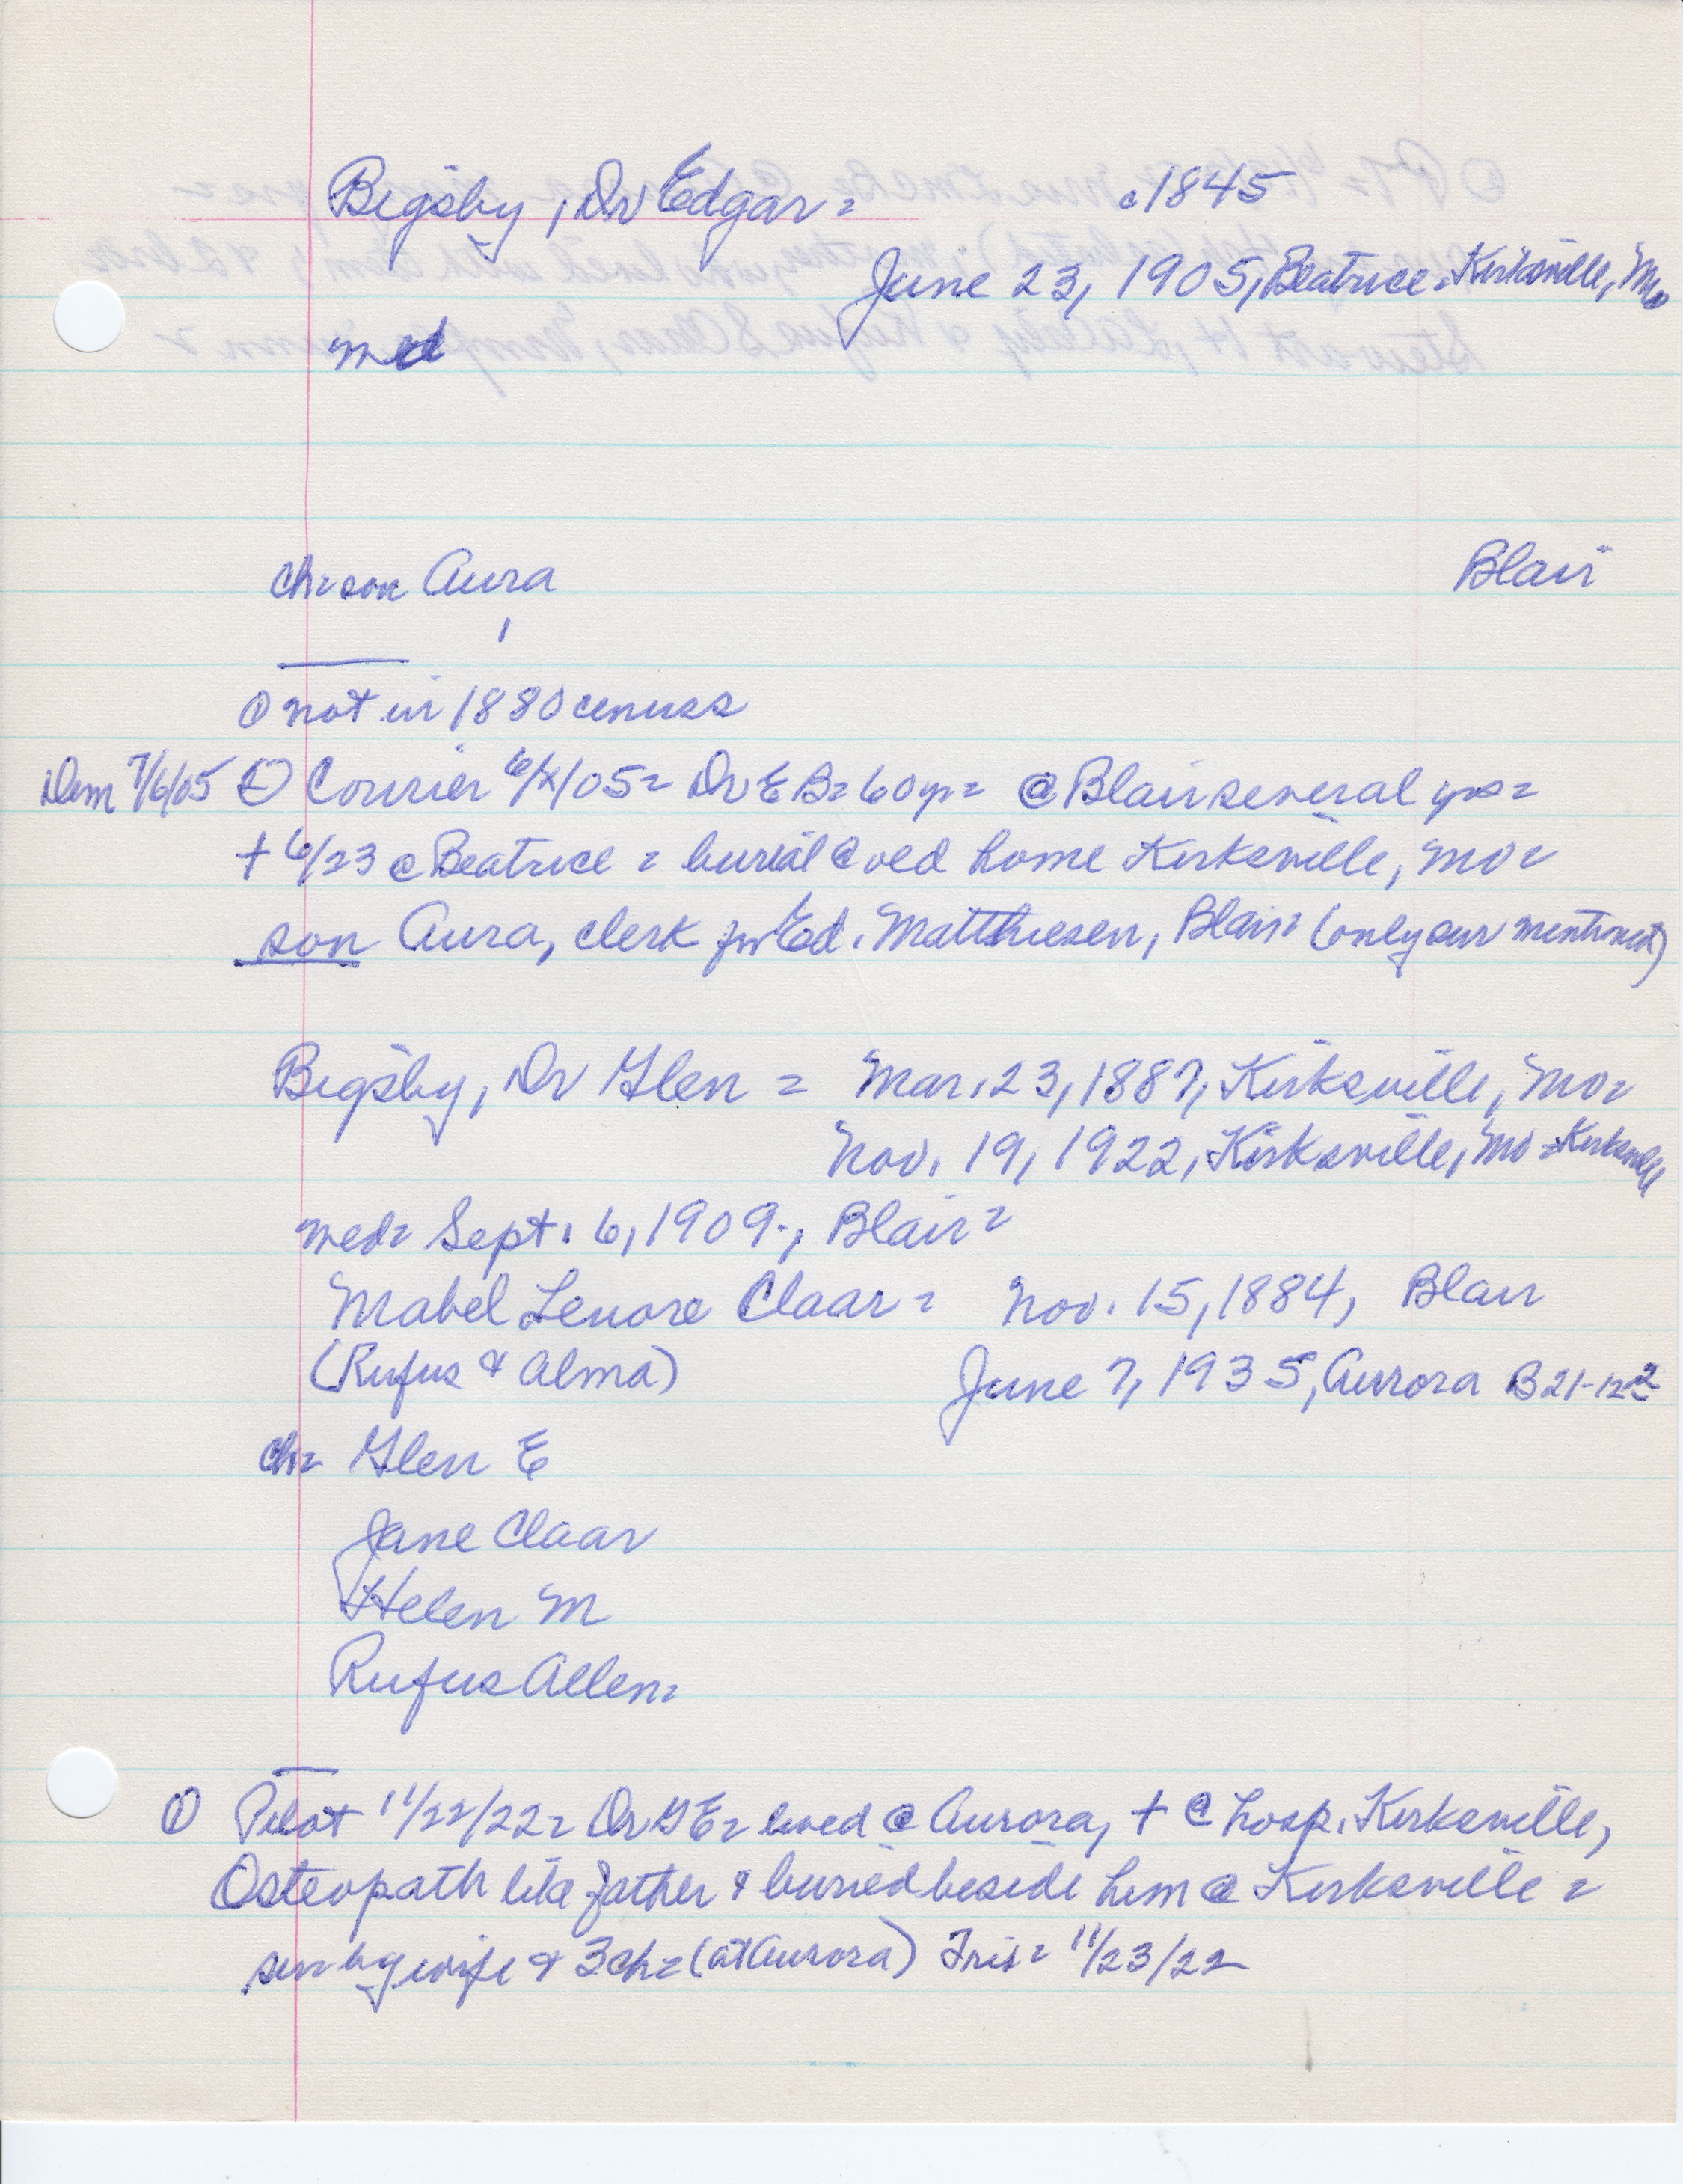 Bigsby, Dr Edgar = c1845
June 23, 1905, Beatrice = Kirksville, Mo
med
ch = son Aura Blair
① not in 1880 cenuss
Dem 7/6/05 Courier 6/ /05 = Dr E B = 60 yr = @ Blair several yrs =
+ 6/23 @ Beatrice = burial @ oed home Kirksville, Mo =
son Aura, clerk for Ed. Matthiesen, Blair = (only sur mentioned)
Bigsby, Dr Glen = Mar. 23, 1887, Kirksville, Mo =
Nov. 19, 1922, Kirksville, Mo = Kirksville
med = Sept. 6, 1909, Blair =
Mabel Lenore Claar = Nov. 15, 1884, Blair
(Rufus & Alma) June 7, 1935, Aurora B21-12
ch = Glen E
Jane Claar
Helen M
Rufus Allen =
① Pilot 11/22/22 = Dr G E = lived @ Aurora, + @ hosp. Kirksville,
Osteopath like father & buried beside him @ Kirksville =
sur by wife & 3 ch = (at Aurora) Trib = 11/23/22